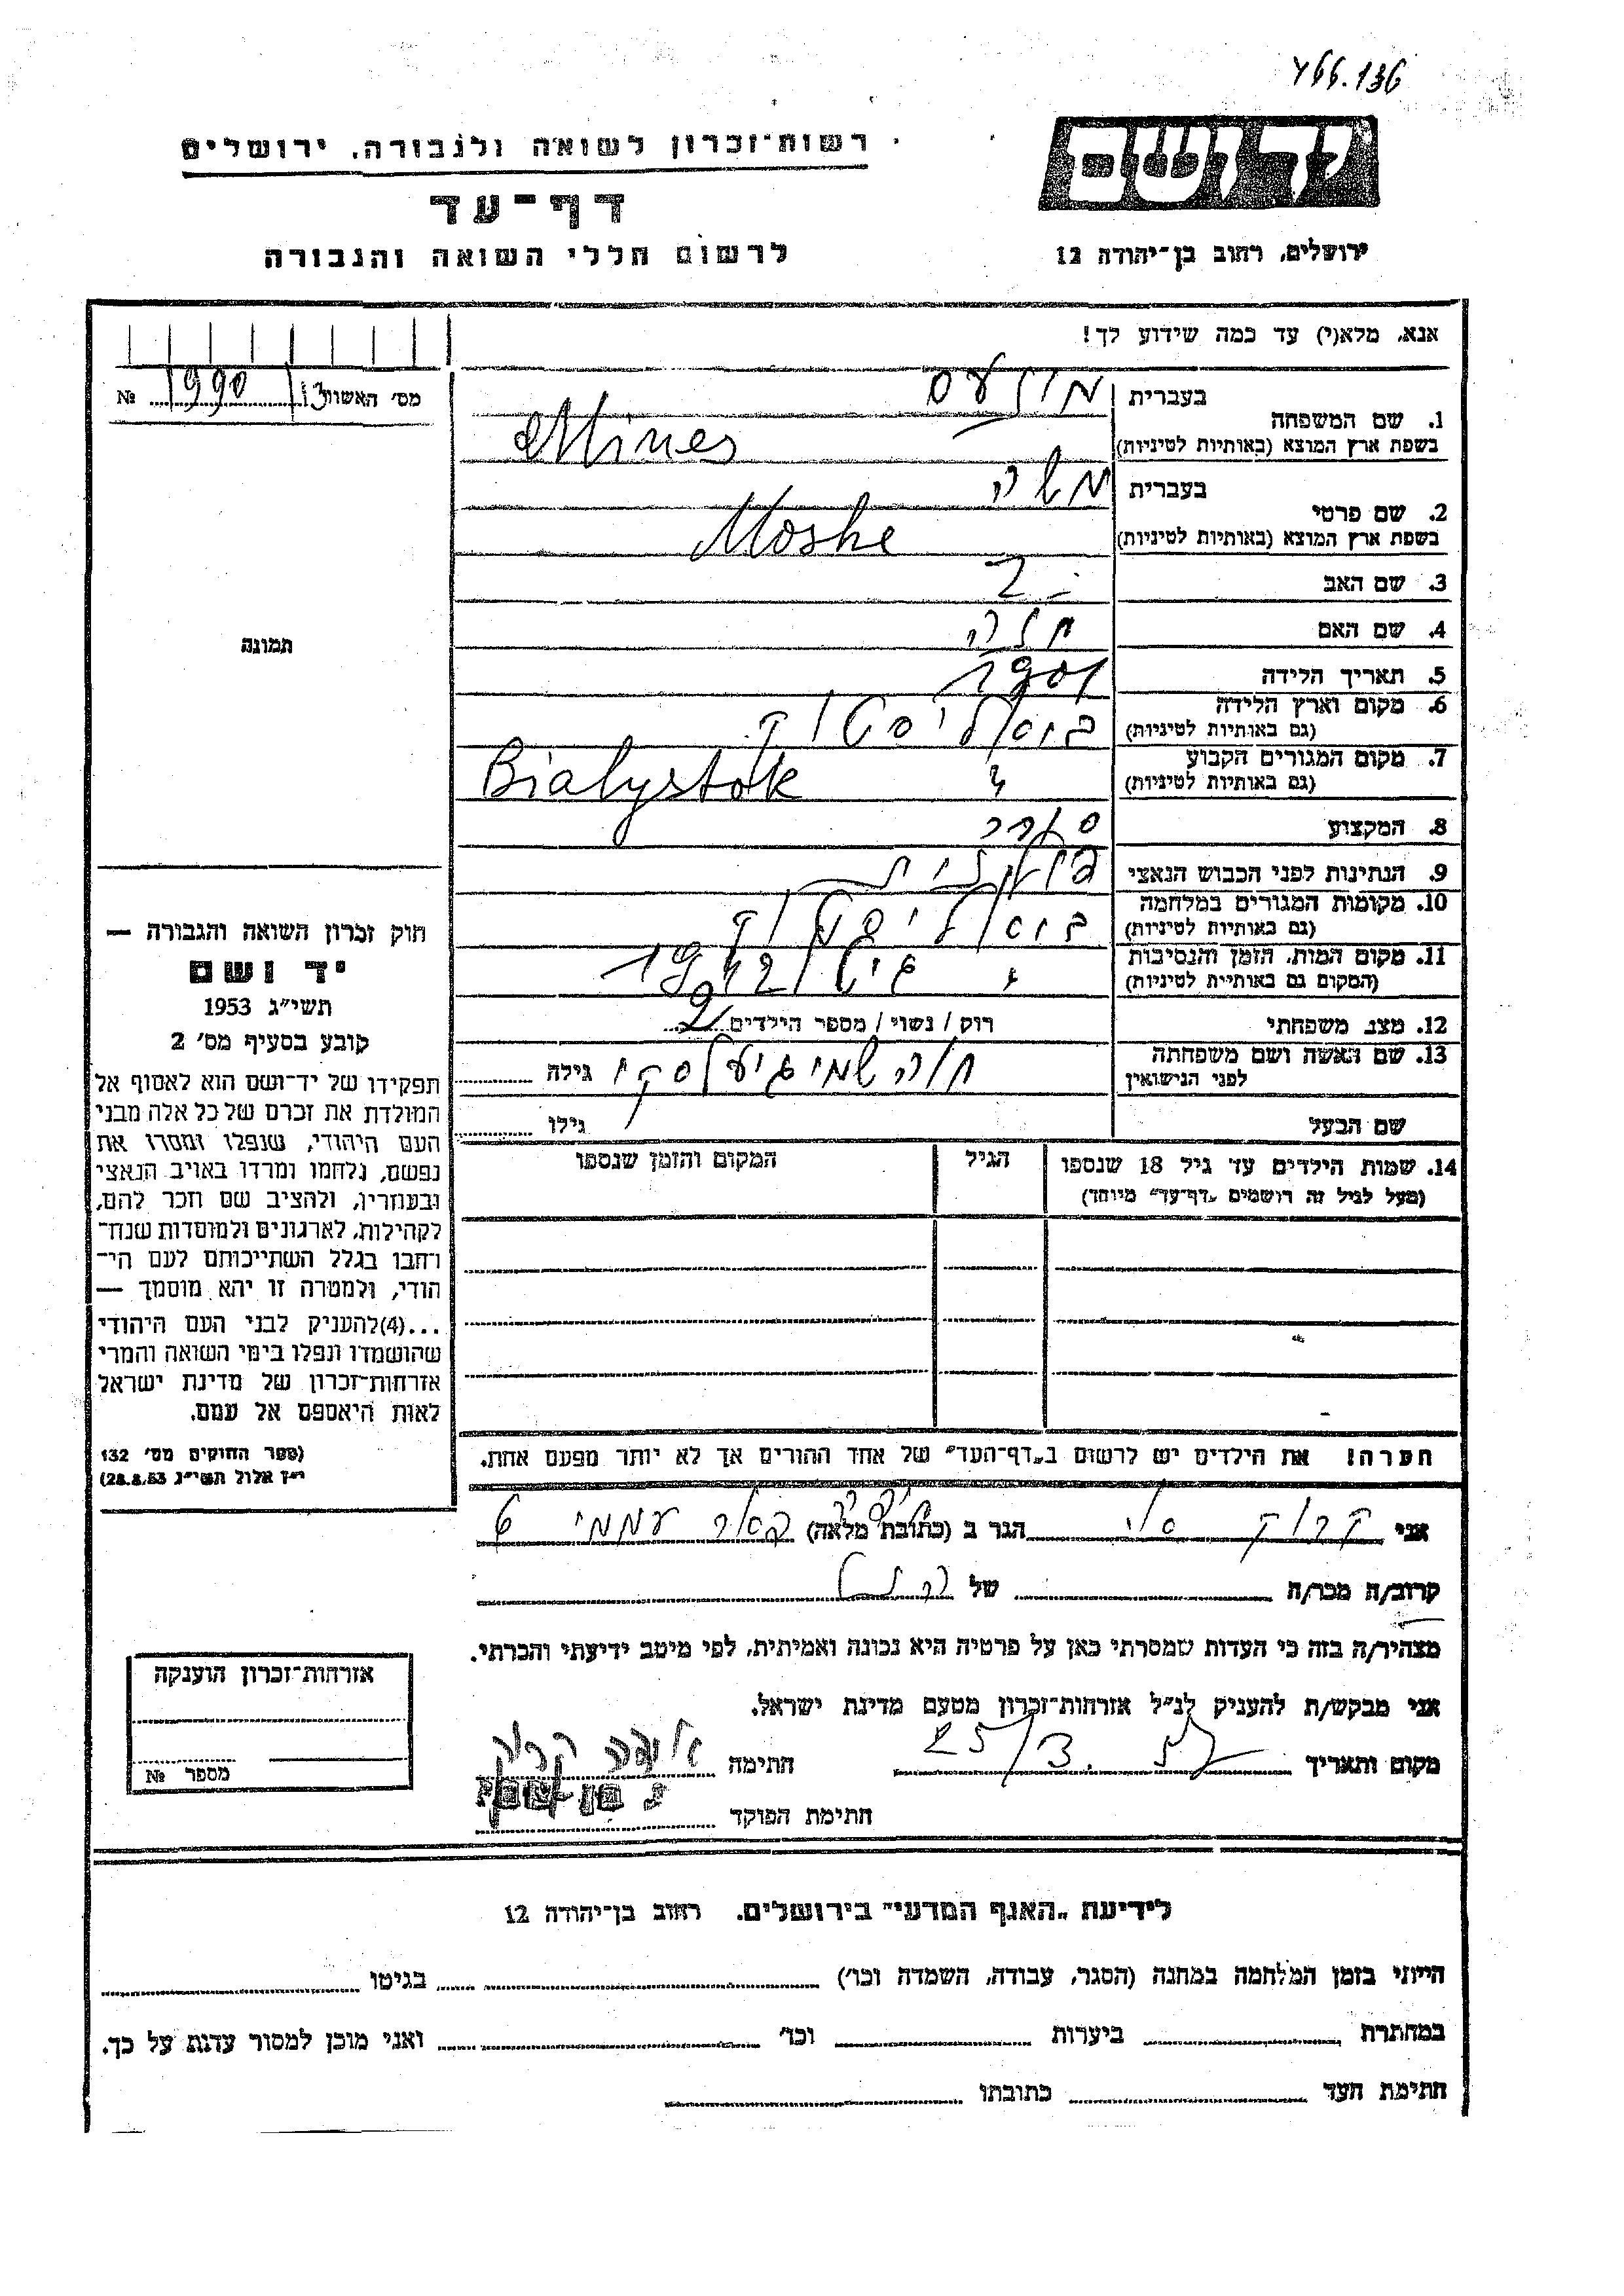 466.136
יד ושם
רשות־זכרון לשואה ולגבורה, ירושלים
דף־עד
לרשום חללי השואה והגבורה
ירושלים, רחוב בן־יהודה 12
אנא, מלא(י) עד כמה שידוע לך!
מס׳ האשות 13/ 1990 №
1. שם המשפחה
בעברית
בשפת ארץ המוצא (באותיות לטיניות) Mines
2. שם פרטי
בעברית משה
בשפת ארץ המוצא (באותיות לטיניות) Moshe
3. שם האב
4. שם האם
5. תאריך הלידה 1901
6. מקום וארץ הלידה
(גם באותיות לטיניות) ביאליסטוק
7. מקום המגורים הקבוע
(גם באותיות לטיניות) " Bialystok
8. המקצוע
9. הנתינות לפני הכבוש הנאצי פולנית
10. מקומות המגורים במלחמה
(גם באותיות לטיניות) ביאליסטוק
11. מקום המות, הזמן והנסיבות
(המקום גם באותיות לטיניות) " גיטו 1942
12. מצב משפחתי רוק / נשוי / מספר הילדים 2
13. שם האשה ושם משפחתה
לפני הנישואין חיה גילה
שם הבעל גילו
14. שמות הילדים עד גיל 18 שנספו
(מעל לגיל זה רושמים „דף־עד״ מיוחד)
הגיל
המקום והזמן שנספו
הערה! את הילדים יש לרשום ב„דף־העד״ של אחד ההורים אך לא יותר מפעם אחת.
תמונה
חוק זכרון השואה והגבורה —
יד ושם
תשי״ג 1953
קובע בסעיף מס׳ 2
תפקידו של יד־ושם הוא לאסוף אל
המולדת את זכרם של כל אלה מבני
העם היהודי, שנפלו ומסרו את
נפשם, נלחמו ומרדו באויב הנאצי
ובעוזריו, ולהציב שם וזכר להם,
לקהילות, לארגונים ולמוסדות שנח־
רבו בגלל השתייכותם לעם הי־
הודי, ולמטרה זו יהא מוסמך —
...(4)להעניק לבני העם היהודי
שהושמדו ונפלו בימי השואה והמרי
אזרחות־זכרון של מדינת ישראל
לאות היאספם אל עמם.
(ספר החוקים מס׳ 132
י״ז אלול תשי״ג 28.8.53)
אני הגר ב (כתובת מלאה) באר עממי 6
קרוב/ה מכר/ה של
מצהיר/ה בזה כי העדות שמסרתי כאן על פרטיה היא נכונה ואמיתית, לפי מיטב ידיעתי והכרתי.
אני מבקש/ת להעניק לנ״ל אזרחות־זכרון מטעם מדינת ישראל.
מקום ותאריך 25/3. 57 חתימה
חתימת הפוקד
אזרחות־זכרון הוענקה
מספר №
לידיעת „האגף המדעי״ בירושלים, רחוב בן־יהודה 12
הייתי בזמן המלחמה במחנה (הסגר, עבודה, השמדה וכו׳) בגיטו
במחתרת ביערות וכו׳ ואני מוכן למסור עדות על כך.
חתימת העד כתובתו